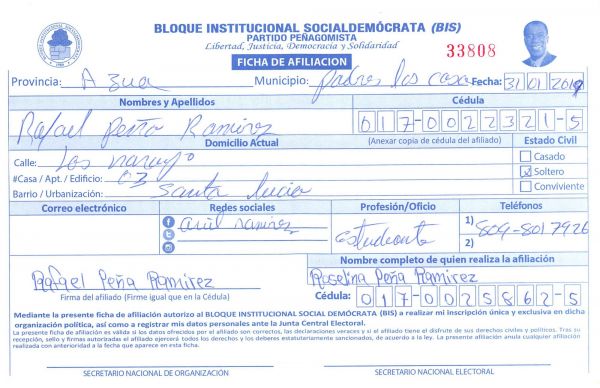 BLOQUE INSTITUCIONAL SOCIALDEMÓCRATA (BIS)
PARTIDO PEÑAGOMISTA
Libertad, Justicia, Democracia y Solidaridad
33808
FICHA DE AFILIACION
Provincia: Azua Municipio: padres las casa Fecha: 31/01/2019
Nombres y Apellidos Cédula
Rafael Peña Ramirez 017-0022321-5
Domicilio Actual (Anexar copia de cédula del afiliado) Estado Civil
Calle: Los naranjo Casado
#Casa / Apt. / Edificio: 03 Soltero
Barrio / Urbanización: Santa lucia Conviviente
Correo electrónico Redes sociales Profesión/Oficio Teléfonos
ariil ramirez estudiante 1) 809-801 7926
2)
Nombre completo de quien realiza la afiliación
Rafael Peña Ramirez Roselina Peña Ramirez
Firma del afiliado (Firme igual que en la Cédula) Cédula: 017-0025862-5
Mediante la presente ficha de afiliación autorizo al BLOQUE INSTITUCIONAL SOCIAL DEMÓCRATA (BIS) a realizar mi inscripción única y exclusiva en dicha
organización política, así como a registrar mis datos personales ante la Junta Central Electoral.
La presente ficha de afiliación es válida si los datos ofrecidos por el afiliado son correctos, las declaraciones veraces y si el afiliado tiene el disfrute de sus derechos civiles y políticos. Tras su
recepción, sello y firmas autorizadas el afiliado ejercerá todos los derechos y los deberes estatutariamente sancionados, de acuerdo a la ley. La presente afiliación anula cualquier afiliación
realizada con anterioridad a la fecha que aparece en esta ficha.
SECRETARIO NACIONAL DE ORGANIZACIÓN SECRETARIO NACIONAL ELECTORAL